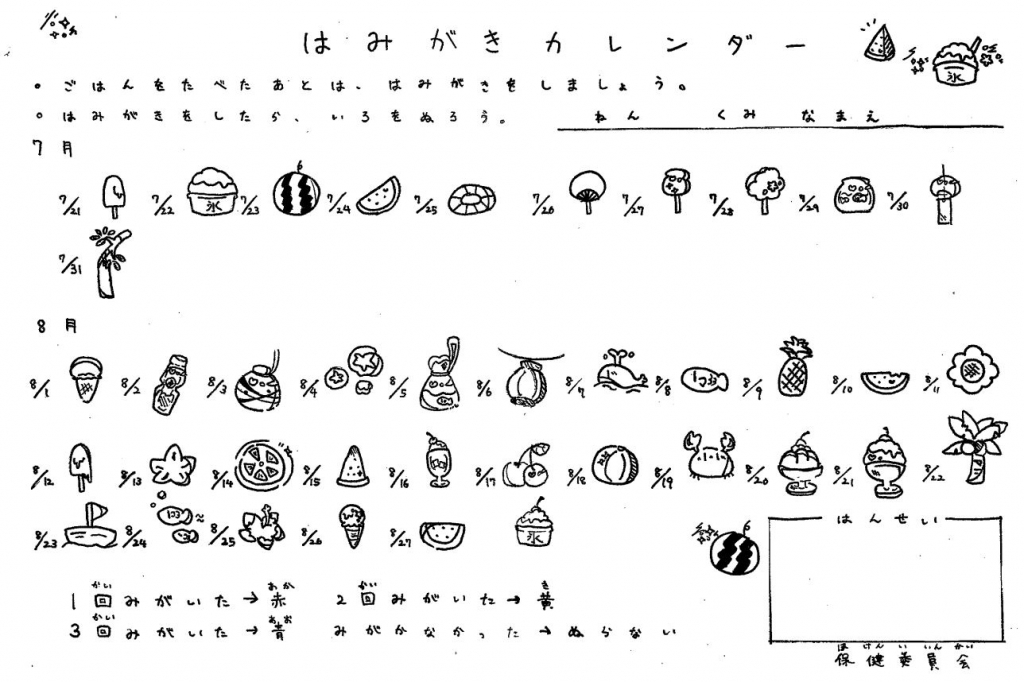 はみがきカレンダー
。ごはんをたべたあとは、はみがきをしましょう。
。はみがきをしたら、いろをぬろう。 ねん くみ なまえ
7月
7/21 7/22 氷 7/23 7/24 7/25 7/26 7/27 7/28 7/29 7/30
7/31
8月
8/1 8/2 8/3 8/4 8/5 8/6 8/7 8/8 8/9 8/10 8/11
8/12 8/13 8/14 8/15 8/16 8/17 8/18 8/19 8/20 8/21 8/22
8/23 8/24 8/25 8/26 8/27 氷
はんせい
かい あか かい き
1回みがいた→赤 2回みがいた→黄
かい あお
3回みがいた→青 みがかなかった→ぬらない
ほけんいいんかい
保健委員会
氷